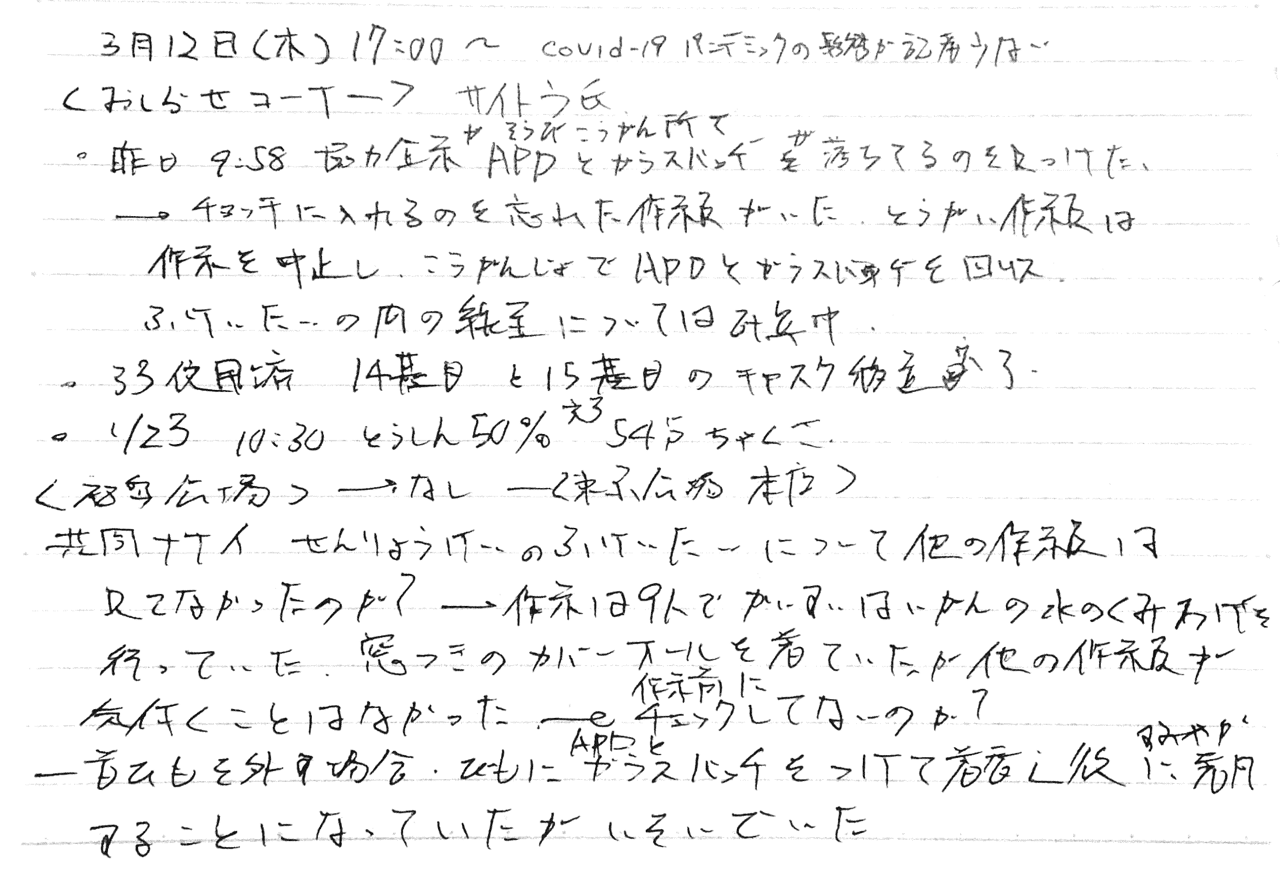 3月12日(木) 17:00〜 covid-19 パンデミックの影響か記者少ない
<おしらせコーナー> サイトウ氏
・昨日 9:58 協力企業がそうびこうかん所でAPDとガラスバッヂが落ちてるのを見つけた、
→チョッキに入れるのを忘れた作業員がいた. とうがい作業員は
作業を中止し、こうかんじょでAPDとガラスバッヂを回収.
ふけいたいの間の線量については計算中.
・33使用済 14基目と15基目のキャスク移送完了.
・1/23 10:30 とうしん50%
<福島広場>→なし―<東京広場 本店>
共同ナケイ せんりょうけいのふけいたいについて他の作業員は
見てなかったのか? →作業は9人でかいすいはいかんの水のくみあげを
行っていた. 窓つきのカバーオールを着ていたが他の作業員が
気付くことはなかった →作業前にチェックしてないのか?
―首ひもを外す場合、ひもにAPDとガラスバッチをつけて着衣し後すみやかに着用
することになっていたがいそいでいた